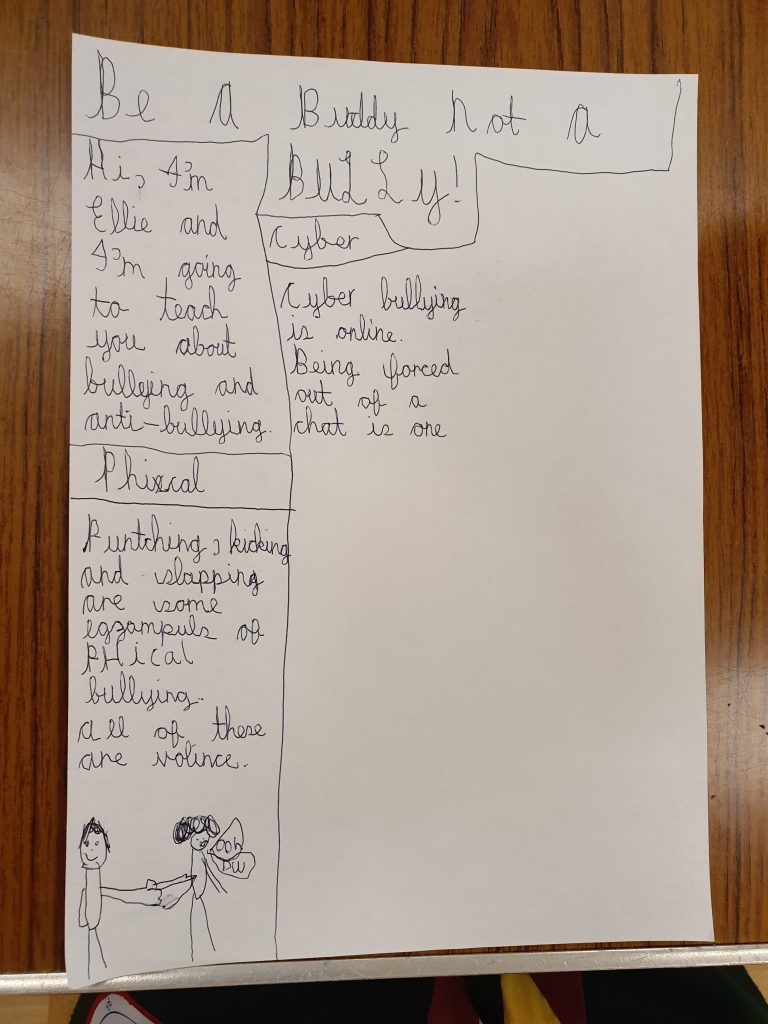 Be a Buddy not a
BULLy!
Hi, I'm
Ellie and
I'm going
to teach
you about
bulleying and
anti-bullying.
Phixcal
Puntching, kicking
and slapping
are some
egzampuls of
PHical
bullying.
all of these
are volince.
Ooh
Cyber
Cyber bullying
is online.
Being forced
out of a
chat is one